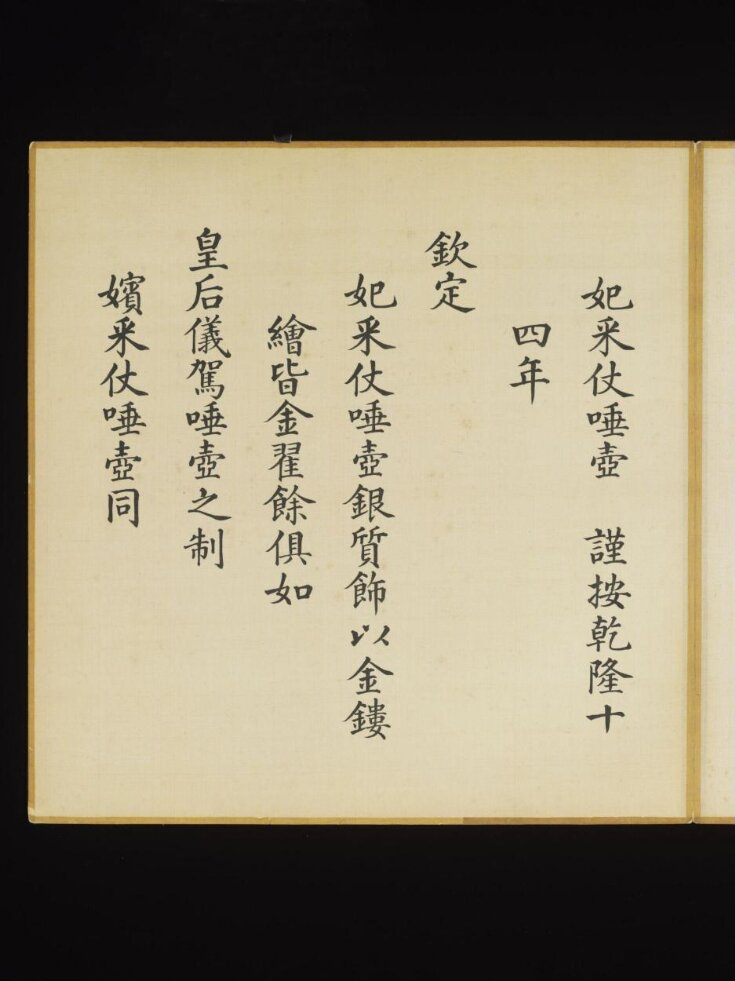 妃采仗唾壺　謹按乾隆十
四年
欽定
妃采仗唾壺銀質飾以金鏤
繪皆金翟餘俱如
皇后儀駕唾壺之制
嬪采仗唾壺同